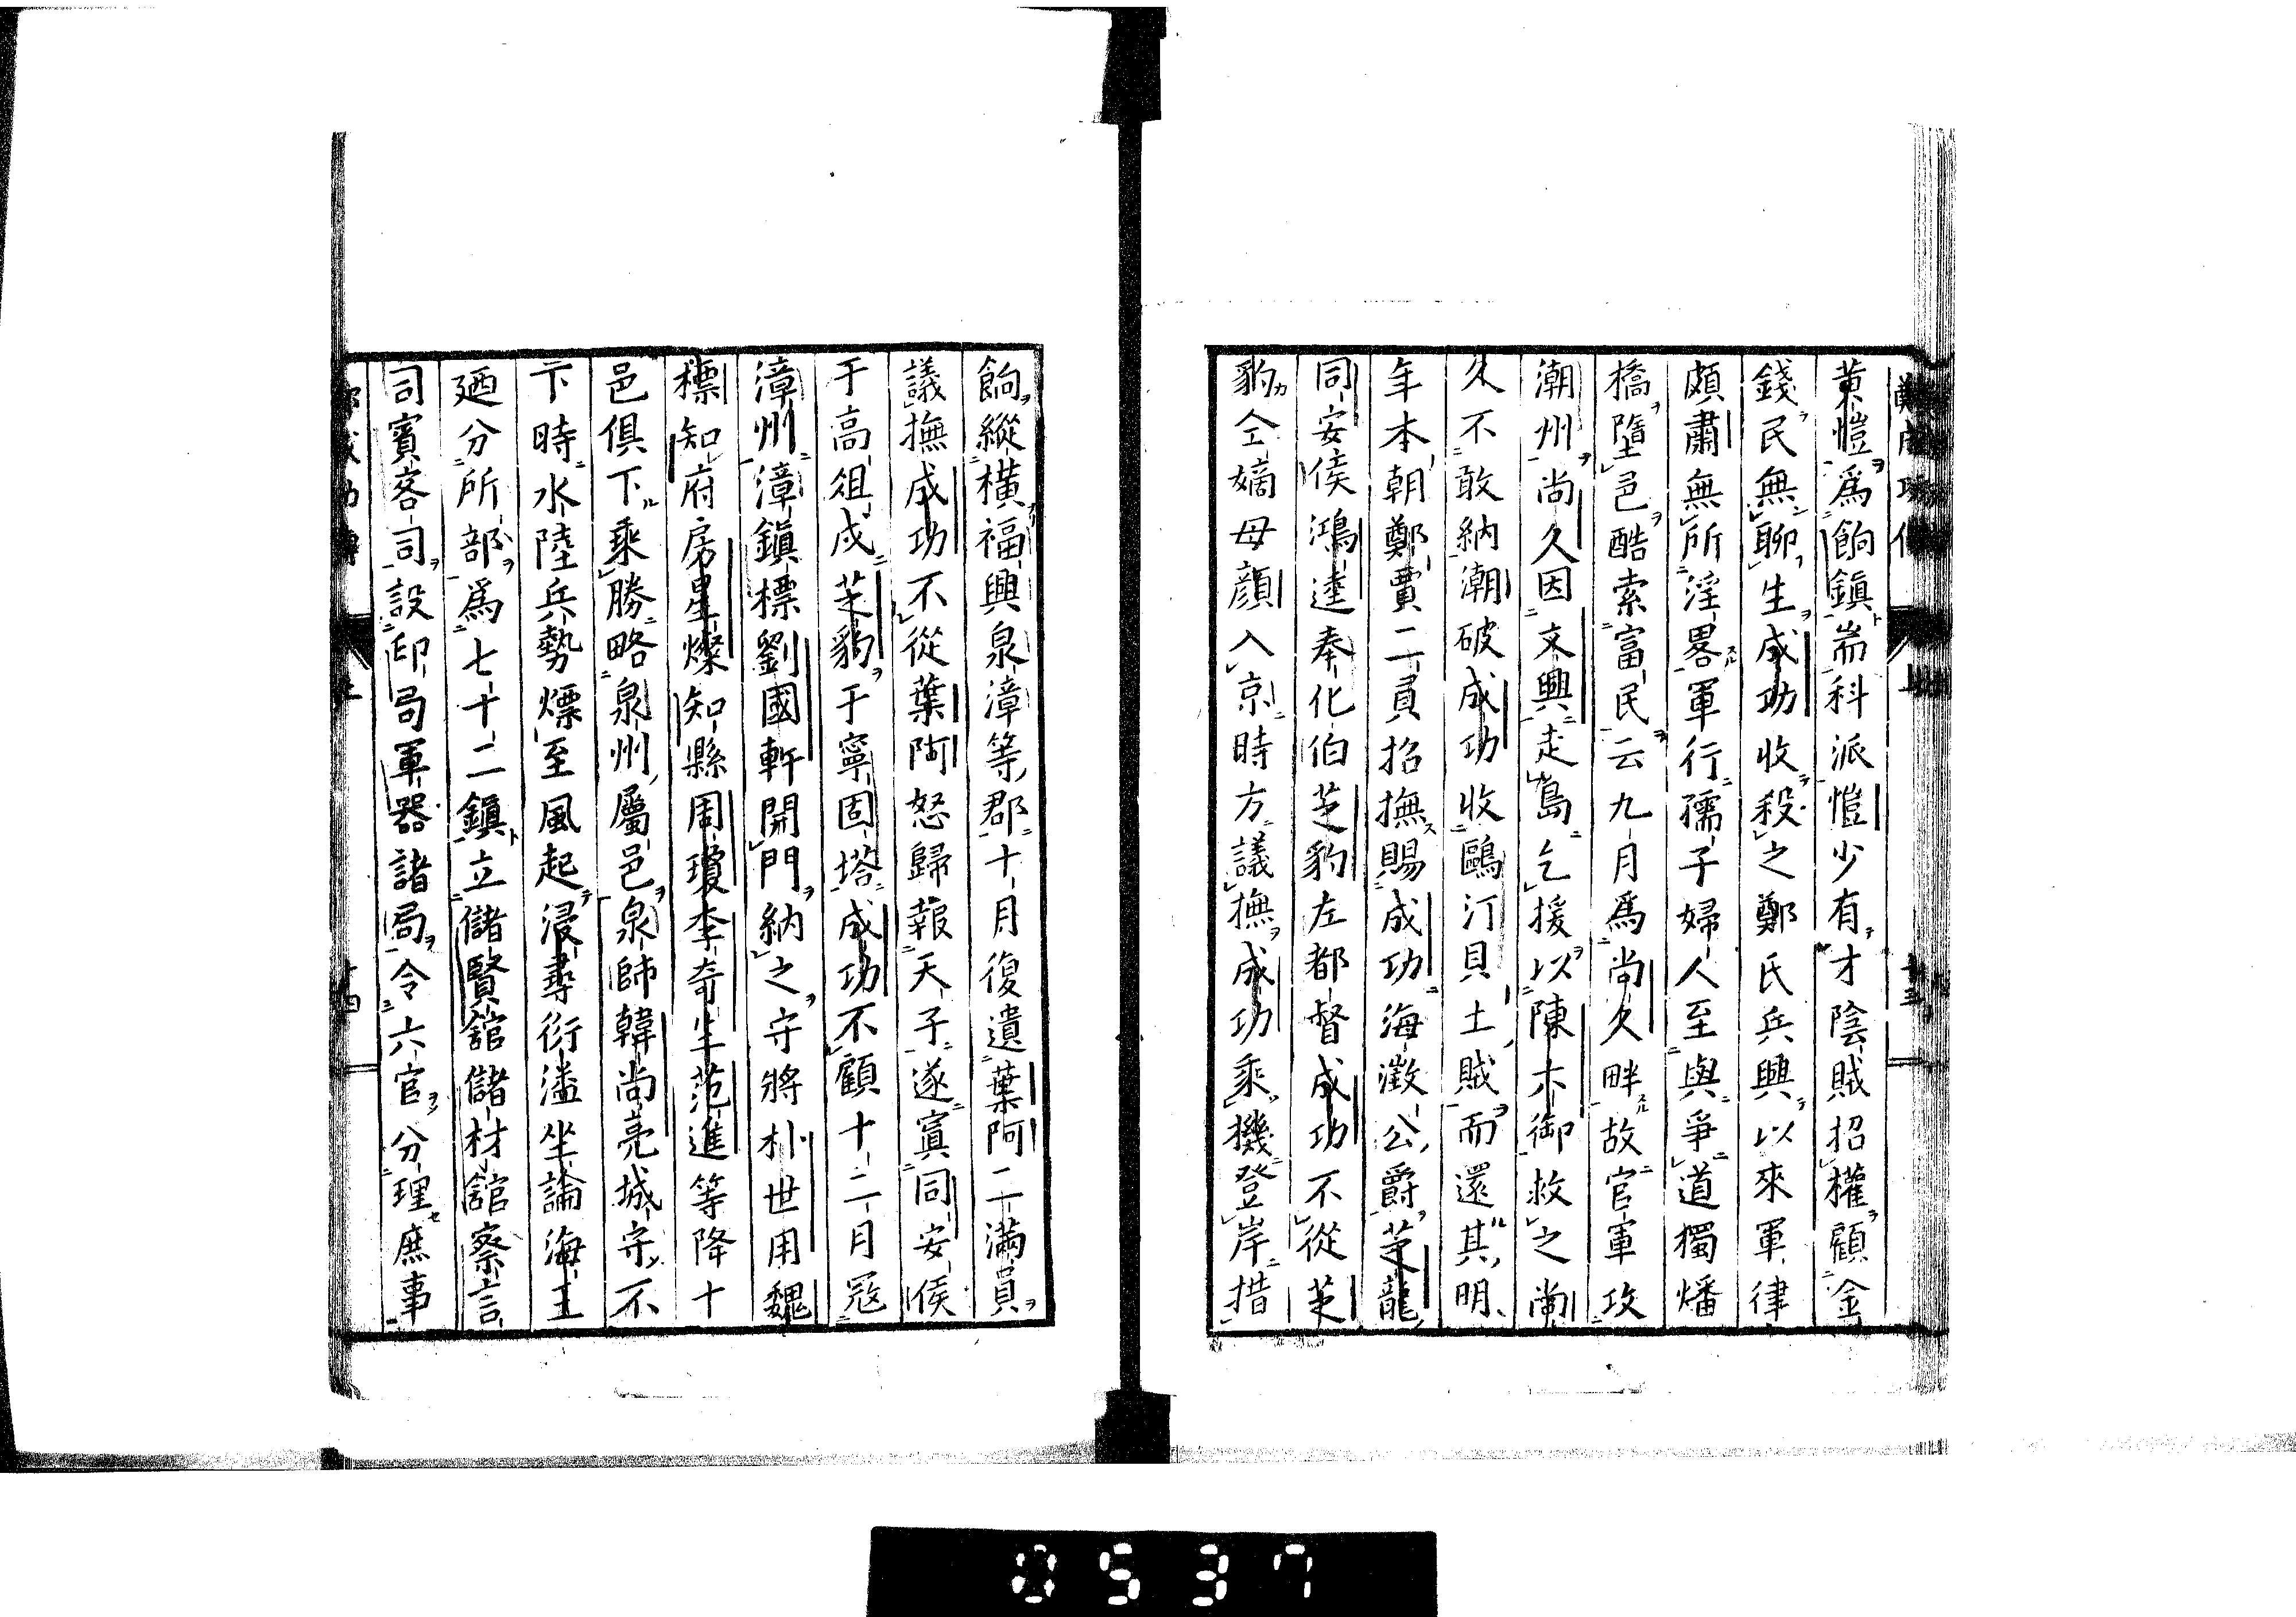 鄭成功傳 上 十三
黄愷爲餉鎮耑科派愷少有才陰賊招權顧金
錢民無聊生成功收殺之鄭氏兵興以來軍律
頗肅無所淫畧軍行孺子婦人至與爭道獨燔
橋墮邑酷索富民云九月爲尚久畔故官軍攻
潮州尚久因文興走島乞援以陳木御救之尚
久不敢納潮破成功收鷗汀貝土賊而還其明
年本朝鄭賈二員招撫賜成功海澂公爵芝龍
同安侯鴻逵奉化伯芝豹左都督成功不從芝
豹仝嫡母顔入京時方議撫成功乘機登岸措
餉縱横福興泉漳等郡十月復遣葉阿二滿員
議撫成功不從葉阿怒歸報天子遂寘同安侯
于高俎戍芝豹于寧固塔成功不顧十二月冦
漳州漳鎮標劉國軒開門納之守將朴世用魏
標知府房星燦知縣周瓊李奇生范進等降十
邑俱下乘勝略泉州屬邑泉師韓尚亮城守不
下時水陸兵勢熛至風起浸尋衍溢坐論海王
廼分所部爲七十二鎮立儲賢舘儲材舘察言
司賓客司設印局軍器諸局令六官分理庶事
鄭成功傳 上 十四
0537